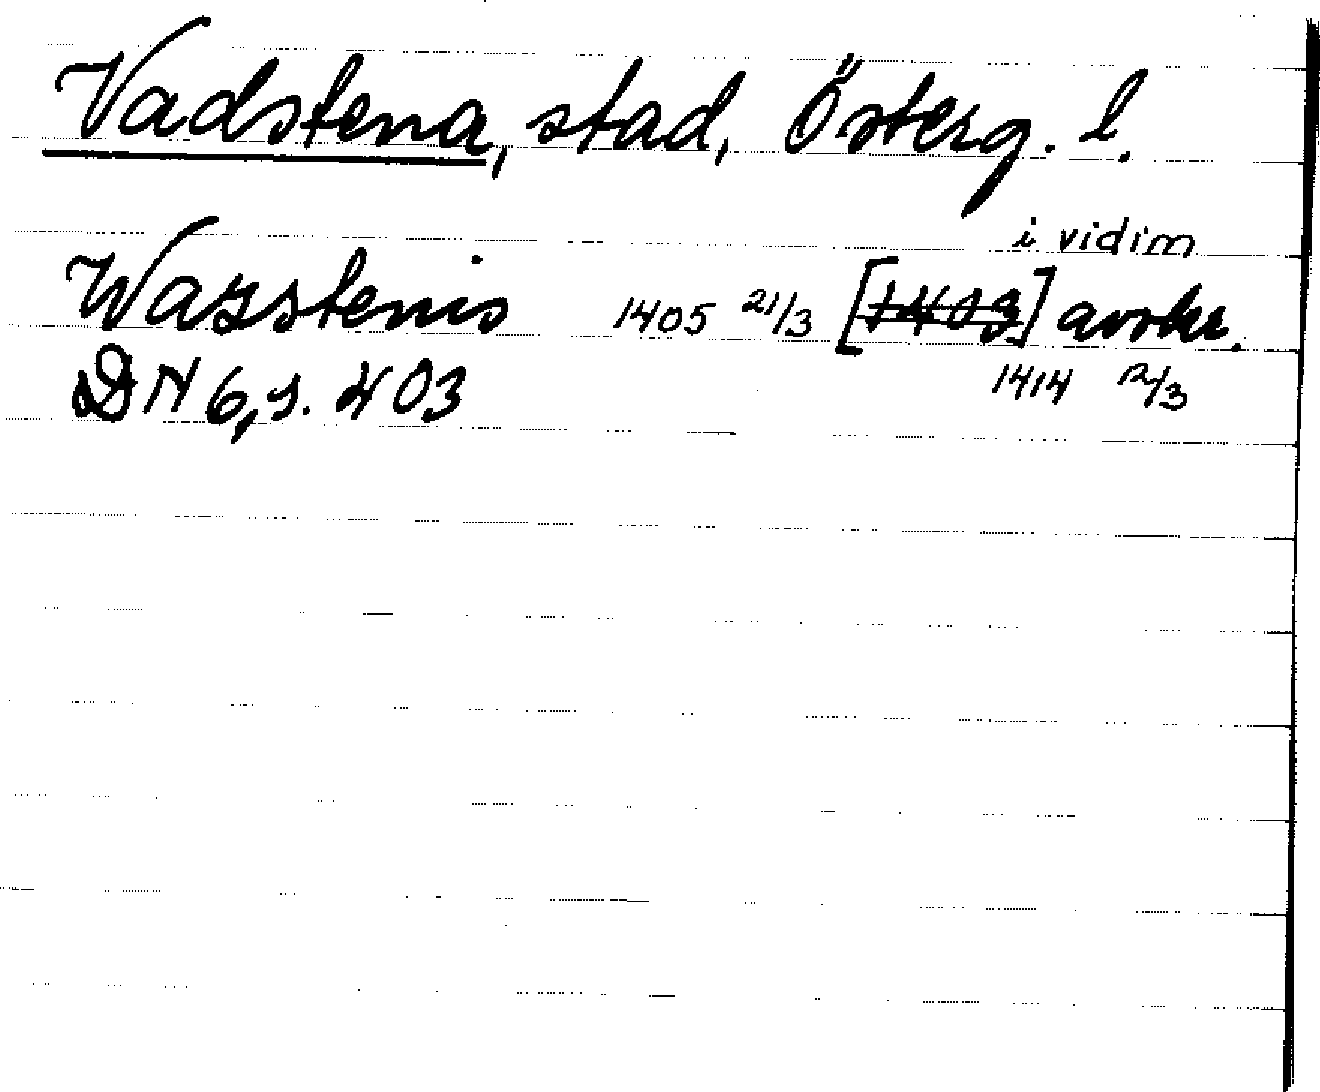 Vadstena, stad, Österg. l.
i vidim
Wazstenis 1405 21/3 [1403] avskr.
DN 6, s. 403 1414 12/3